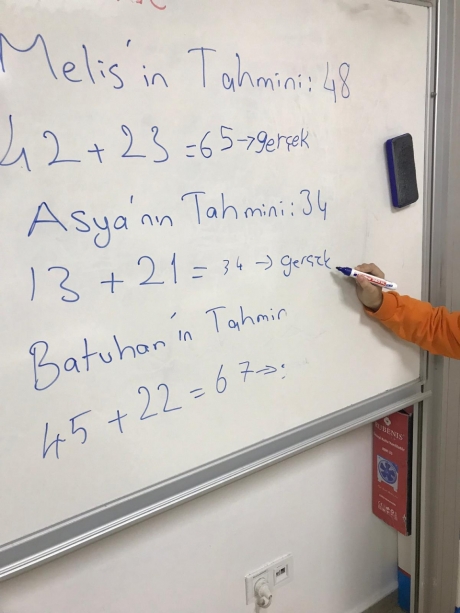 Melis'in Tahmini: 48
42 + 23 = 65 → gerçek
Asya'nın Tahmini: 34
13 + 21 = 34 → gerçek
Batuhan'in Tahmin
45 + 22 = 67 → :
RUBENIS